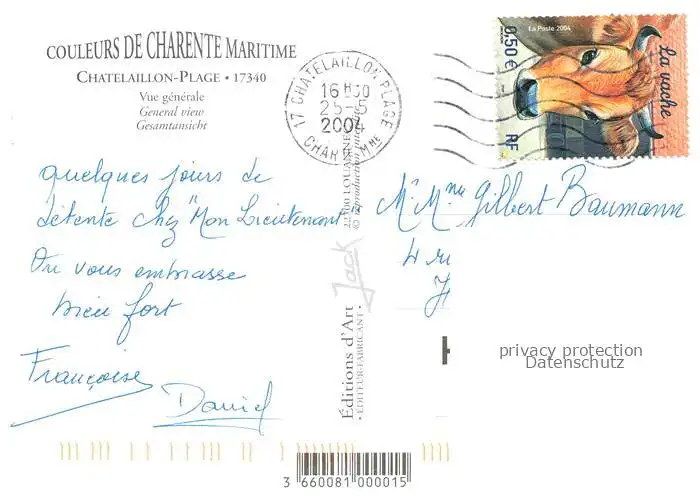 COULEURS DE CHARENTE MARITIME
CHATELAILLON-PLAGE • 17340
Vue générale
General view
Gesamtansicht
17 CHATELAILLON PLAGE
16 H30
25-5
2004
CHARENTE Mme
La Poste 2004
0,50 €
RF
La vache
quelques jours de
détente chez "Mon Lieutenant"
On vous embrasse
bien fort
Françoise
Daniel
Mr Mme Gilbert Baumann
4 ru
Editions d'Art Jack
• EDITEUR-FABRICANT •
privacy protection
Datenschutz
3 660081 000015